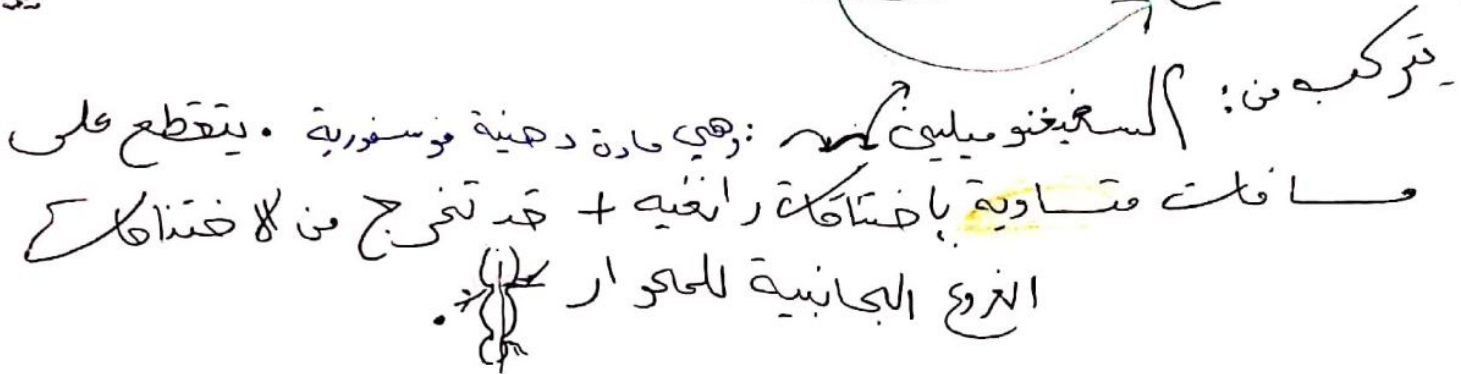 يتركب من: السفينغوميلين: وهي مادة دهنية فوسفورية. يتقطع على
مسافات متساوية باختناقات رانفيه + قد تخرج من الاختناقات
الفروع الجانبية للمحوار.